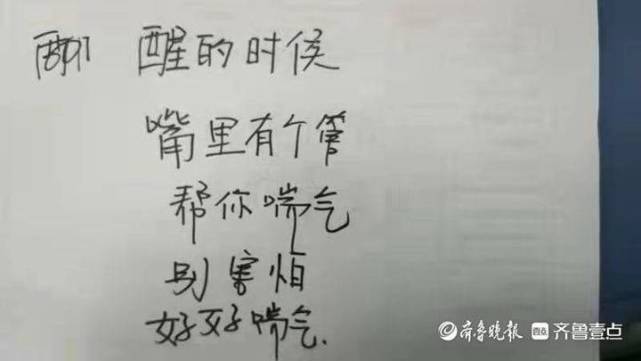 醒的时候
嘴里有个管
帮你喘气
别害怕
好好喘气.
齐鲁晚报 齐鲁壹点